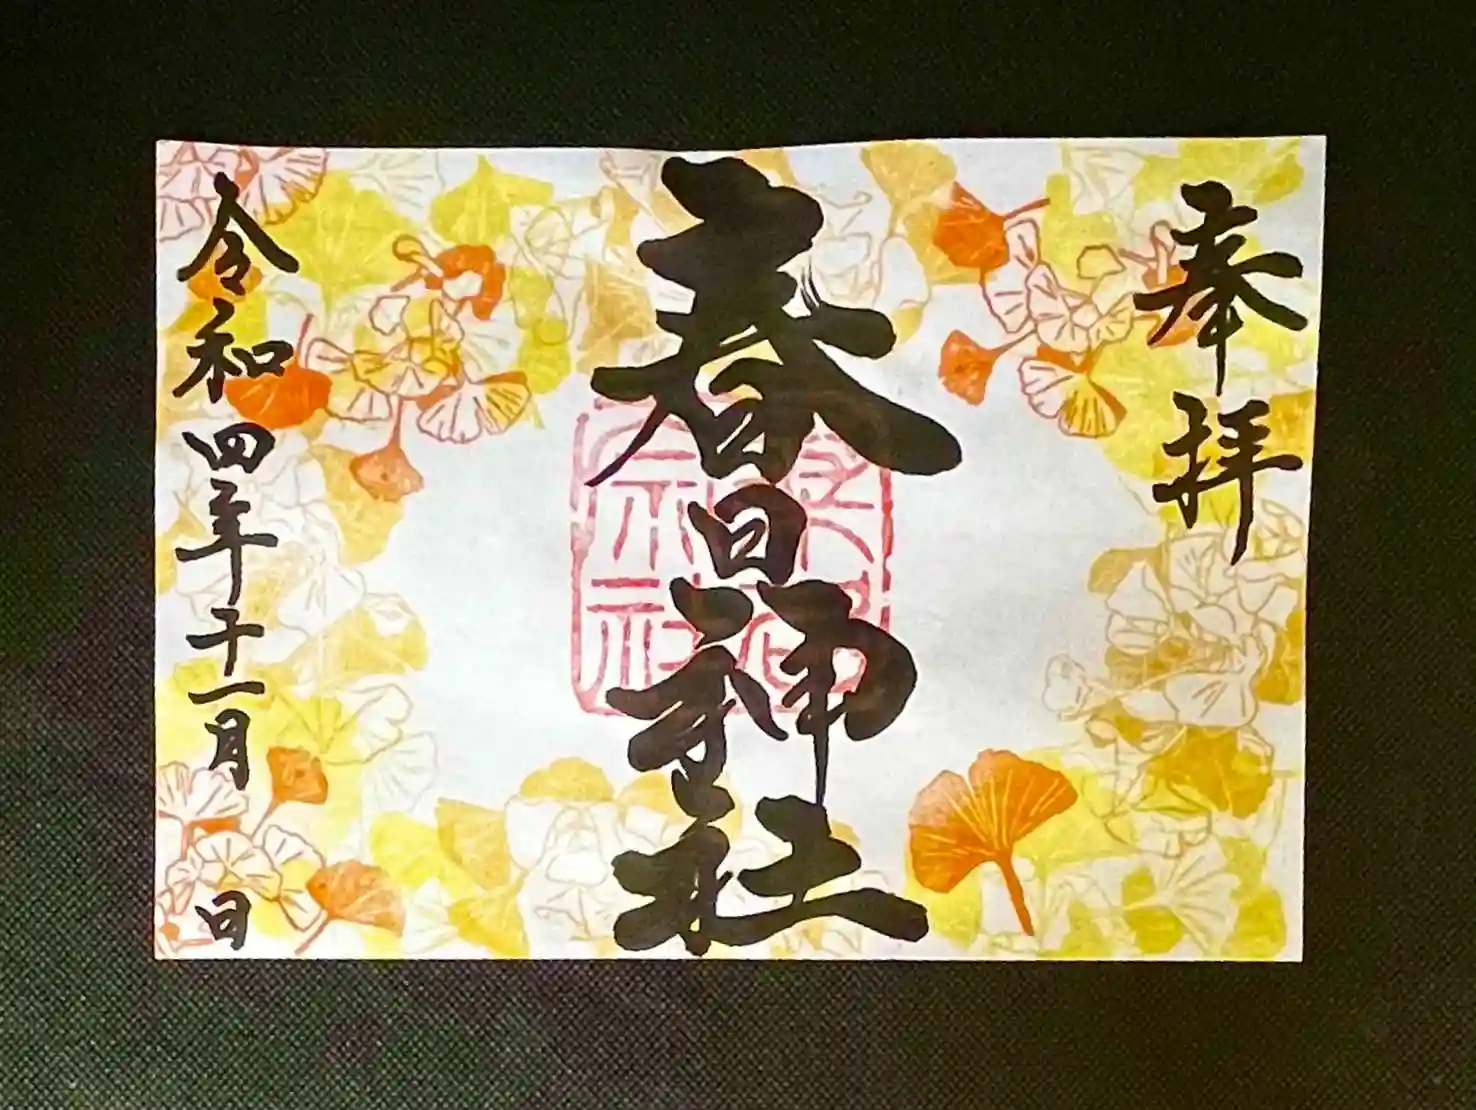 奉拝
春日神社
令和四年十一月 日